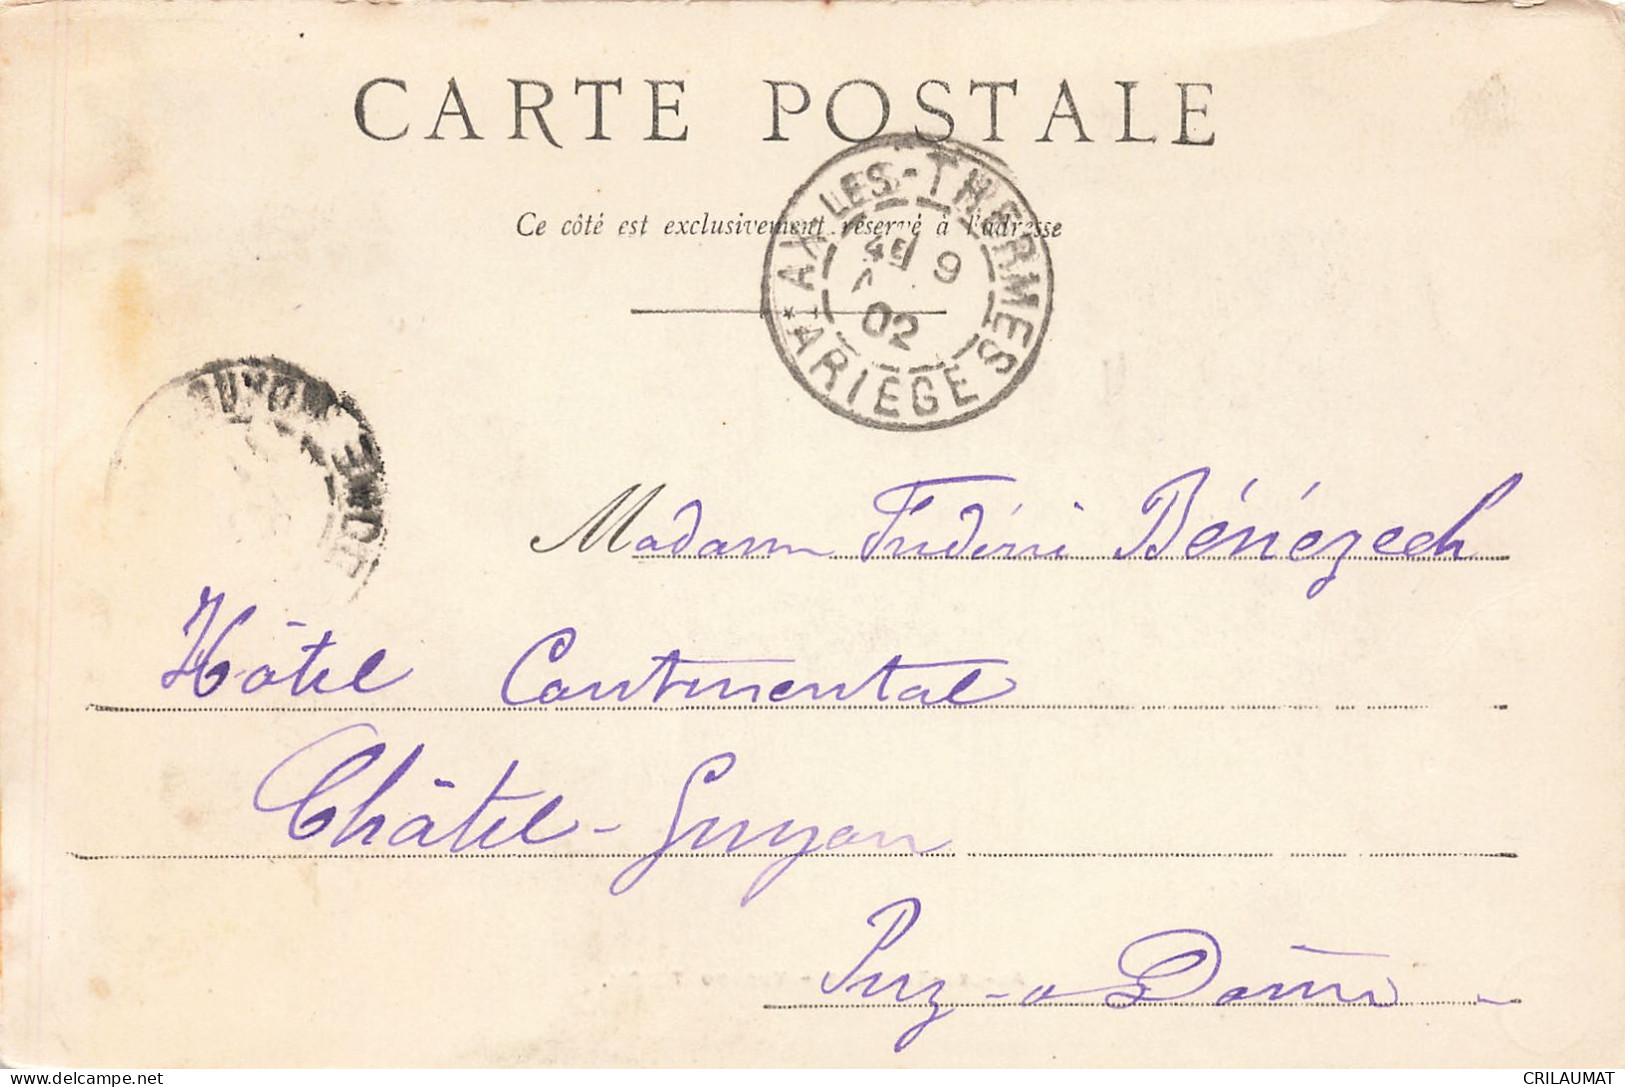 CARTE POSTALE
Ce côté est exclusivement réservé à l'adresse
AX-LES-THERMES
4E 9
02
* ARIÈGE
DOME
Madame Frédéric Bénézech
Hôtel Continental
Châtel-Guyon
Puy-de-Dôme
CRILAUMAT